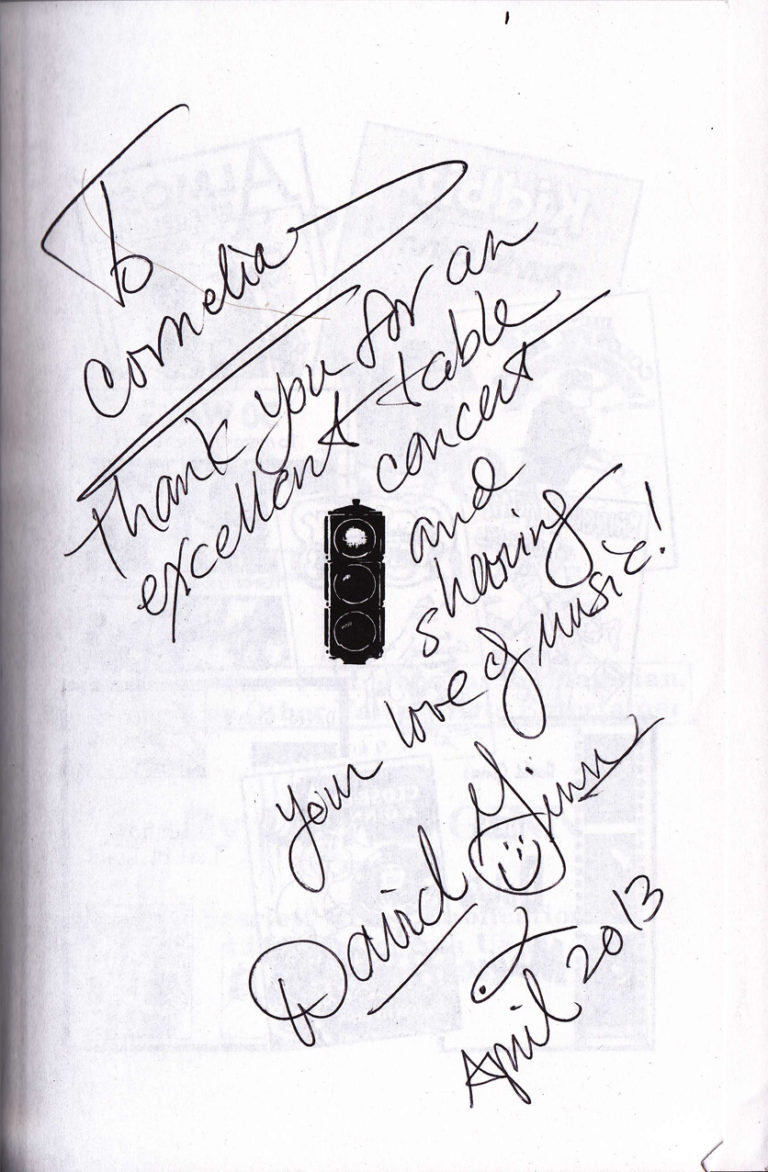 To
Cornelia
Thank you for an
excellent table
concert
and
sharing
your love of music!
David Ginn
April 2013